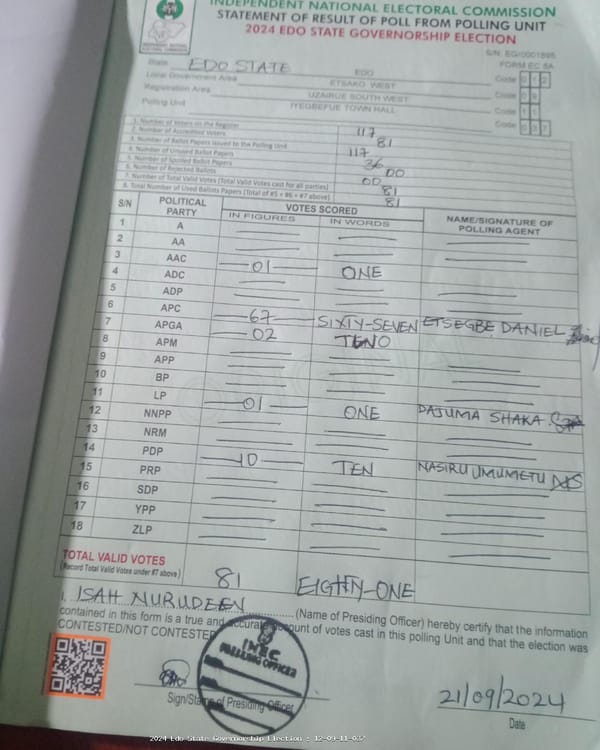 INDEPENDENT NATIONAL ELECTORAL COMMISSION
STATEMENT OF RESULT OF POLL FROM POLLING UNIT
2024 EDO STATE GOVERNORSHIP ELECTION
FORM EC 8A
State EDO STATE EDO Code
Local Government Area ETSAKO WEST Code
Registration Area UZAIRUE SOUTH WEST Code
Polling Unit IYEGBEFUE TOWN HALL Code
1. Number of Voters on the Register 117
2. Number of Accredited Voters 81
3. Number of Ballot Papers Issued to the Polling Unit 117
4. Number of Unused Ballot Papers 36
5. Number of Spoiled Ballot Papers 00
6. Number of Rejected Ballots 00
7. Number of Total Valid Votes (Total Valid Votes cast for all parties) 81
8. Total Number of Used Ballots Papers (Total of #5 + #6 + #7 above) 81
S/N POLITICAL PARTY VOTES SCORED NAME/SIGNATURE OF POLLING AGENT
IN FIGURES IN WORDS
1 A
2 AA
3 AAC 01 ONE
4 ADC
5 ADP
6 APC 67 SIXTY-SEVEN ETSEGBE DANIEL
7 APGA 02
8 APM
9 APP
10 BP
11 LP 01 ONE DAJUMA SHAKA
12 NNPP
13 NRM
14 PDP 10 TEN NASIRU UMUMETU
15 PRP
16 SDP
17 YPP
18 ZLP
TOTAL VALID VOTES
(Record Total Valid Votes under #7 above) 81 EIGHTY-ONE
I, ISAH NURUDEEN (Name of Presiding Officer) hereby certify that the information
contained in this form is a true and accurate account of votes cast in this polling Unit and that the election was
CONTESTED/NOT CONTESTED
INEC
PRESIDING OFFICER
Sign/Stamp of Presiding Officer
21/09/2024
Date